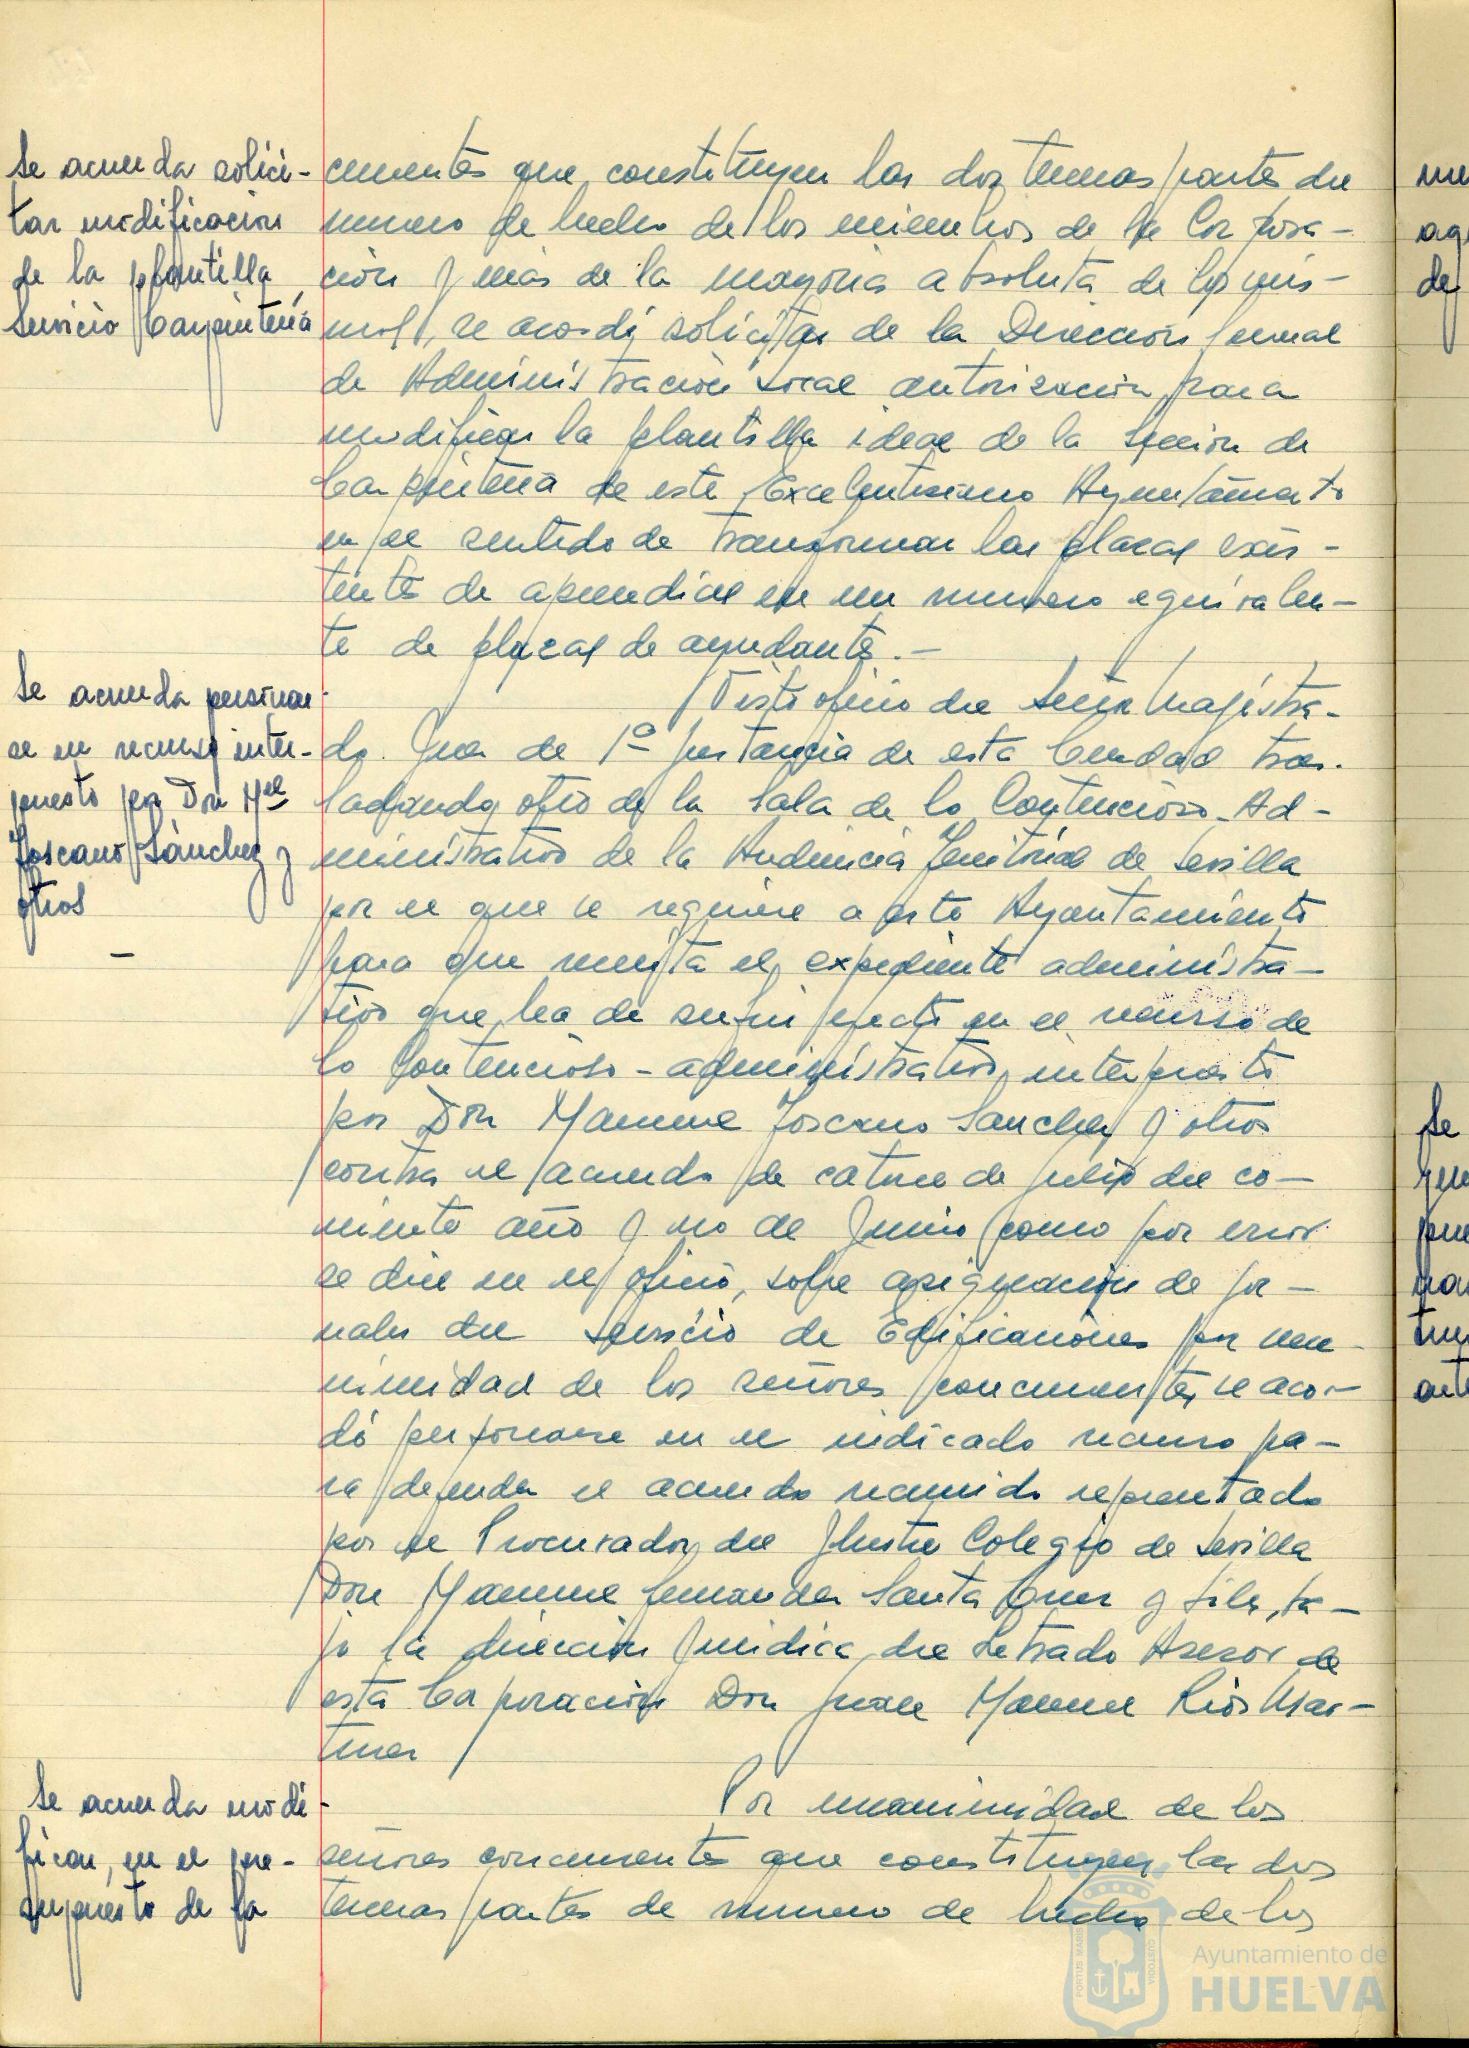 Se acuerda solici-
tar modificación
de la plantilla
Servicio Carpintería
currentes que constituyen las dos terceras partes del
numero de hecho de los miembros de la Corpora-
ción y más de la mayoria absoluta de los mis-
mos, se acordó solicitar de la Dirección General
de Administración Local autorización para
modificar la plantilla ideal de la Sección de
Carpintería de este Excelentisimo Ayuntamiento
en el sentido de transformar las plazas exis-
tentes de aprendices en un numero equivalen-
te de plazas de ayudantes.-
Se acuerda personar-
se en recurso inter-
puesto por Don Mel
Toscano Sánchez y
otros
-
Visto oficio del Señor Magistra-
do Juez de 1ª Instancia de esta Ciudad tras-
ladando otro de la Sala de lo Contencioso-Ad-
ministrativo de la Audiencia Territorial de Sevilla
por el que se requiere a este Ayuntamiento
para que remita el expediente administra-
tivo que ha de surtir efecto en el recurso de
lo Contencioso-administrativo interpuesto
por Don Manuel Toscano Sanchez y otros
contra el acuerdo de catorce de julio del co-
rriente año y no de Junio como por error
se dice en el oficio, sobre asignación de jor-
nales del Servicio de Edificaciones por una-
nimidad de los señores concurrentes se acor-
dó personarse en el indicado recurso pa-
ra defender el acuerdo recurrido representado
por el Procurador del Ilustre Colegio de Sevilla
Don Manuel Fernandez Santa Cruz y Siles, ba-
jo la dirección Juridica del Letrado Asesor de
esta Corporación Don Juan Manuel Rios Mar-
tinez
Se acuerda modi-
ficar, en el pre-
supuesto de la
Por unanimidad de los
señores concurrentes que constituyen las dos
terceras partes de numero de hecho de los
de
Se
Ayuntamiento de
HUELVA
PORTUS MARIS
CUSTODIA